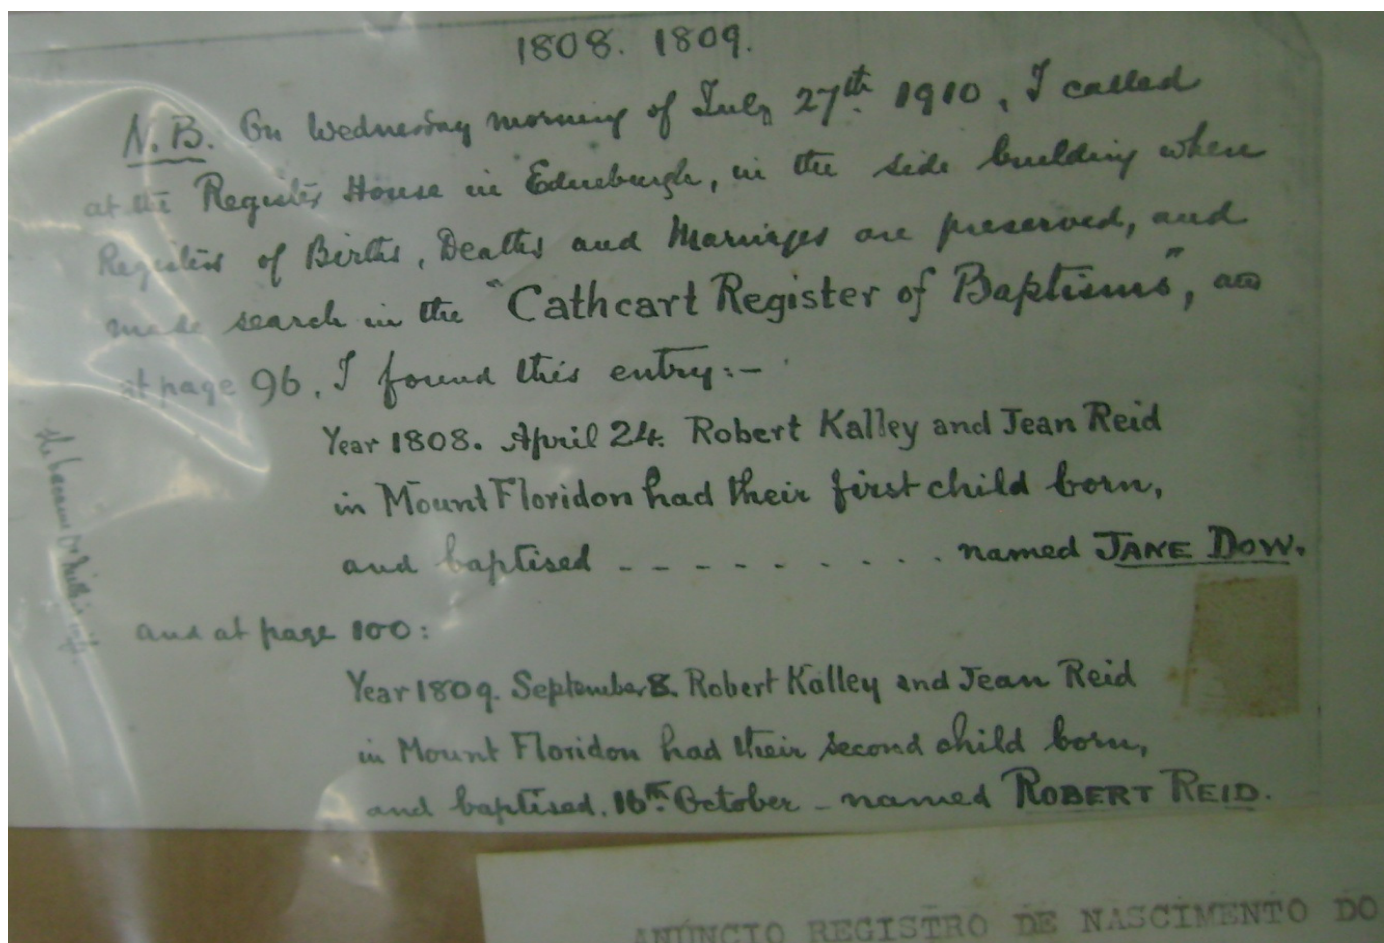 1808. 1809.
N.B. On Wednesday morning of July 27th 1910, I called
at the Register House in Edinburgh, in the side building where
Registers of Births, Deaths and Marriages are preserved, and
made search in the "Cathcart Register of Baptisms", and
at page 96, I found this entry:-
Year 1808. April 24. Robert Kalley and Jean Reid
in Mount Floridon had their first child born,
and baptised - - - - . . . . . named JANE DOW.
and at page 100:
Year 1809. September 8. Robert Kalley and Jean Reid
in Mount Floridon had their second child born,
and baptised. 16th October - named ROBERT REID.
she became
ANÚNCIO REGISTRO DE NASCIMENTO DO